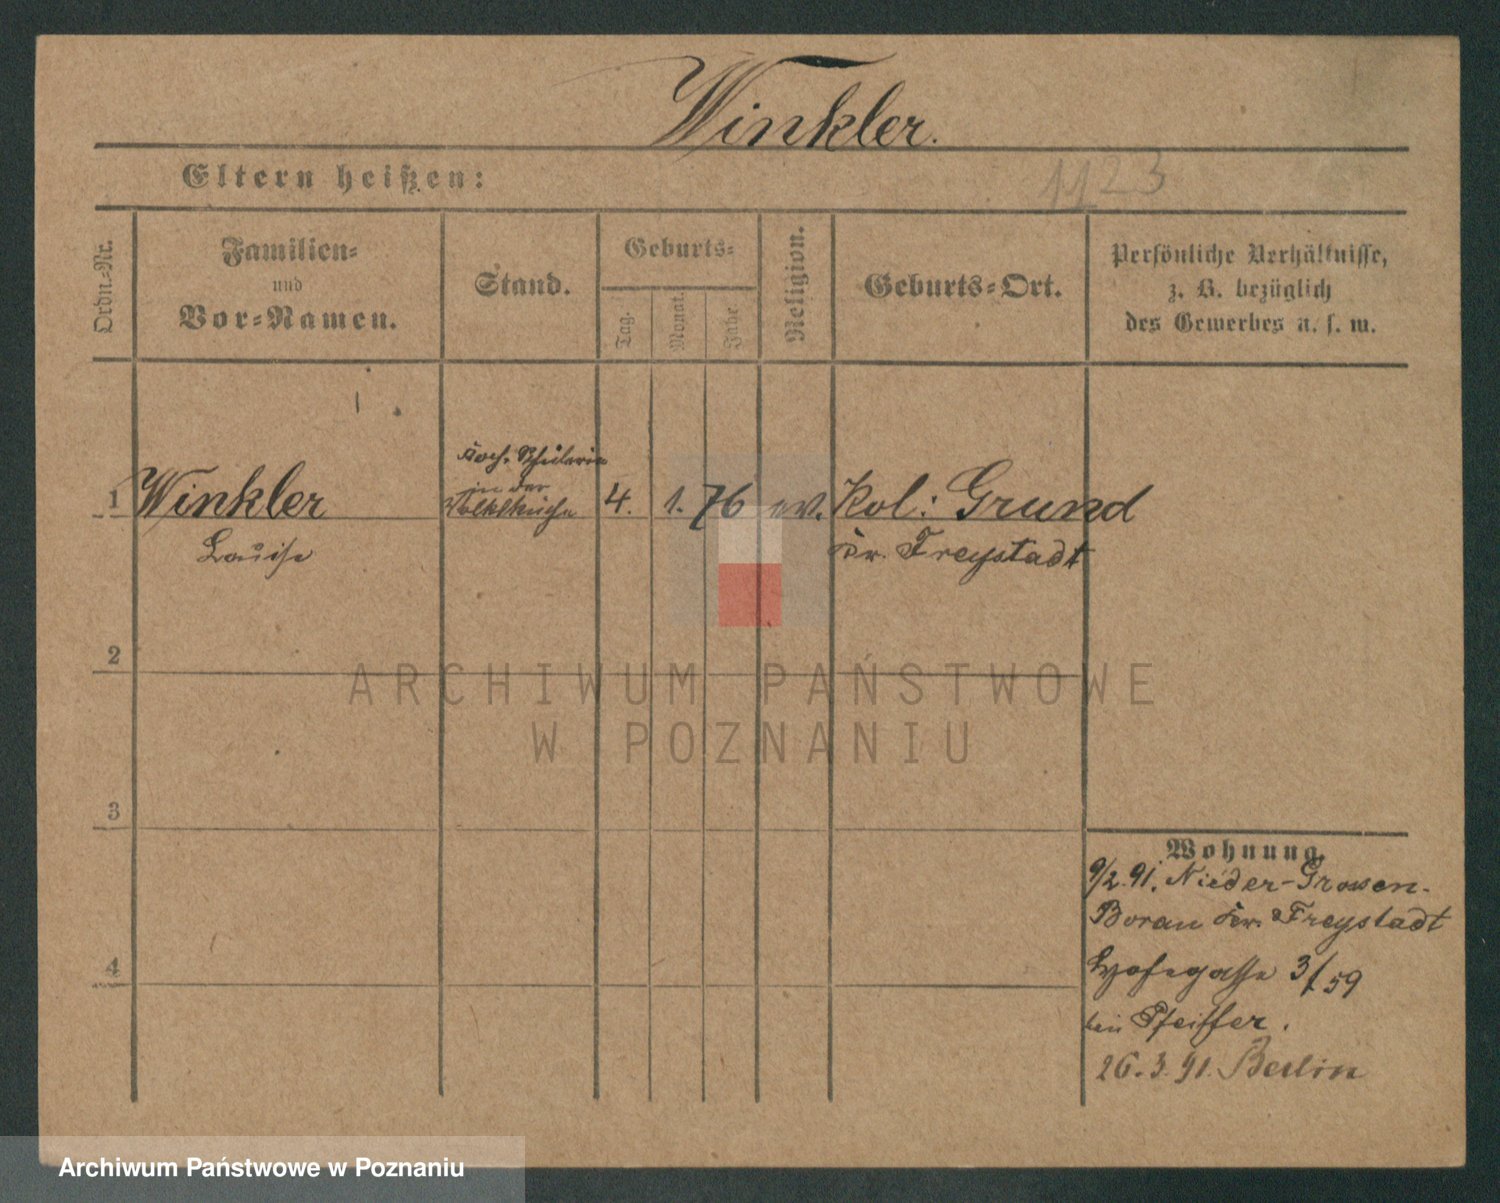 Winkler.
Eltern heißen:
1123
Ordn.-Nr.
Familien-
und
Vor-Namen.
Stand.
Geburts-
Tag.
Monat.
Jahr
Religion.
Geburts-Ort.
Persönliche Verhältnisse,
z. B. bezüglich
des Gewerbes u. s. w.
1 Winkler
Louise
Koch. Schülerin
in der
Volksküche
4. 1. 76 ev. Kol: Grund
Kr. Freystadt
2
3
4
Wohnung.
9/2. 91. Nieder-Grossen-
Boran Kr. Freystadt
3/59
bei Pfeiffer.
26. 3. 91. Berlin
ARCHIWUM PAŃSTWOWE
W POZNANIU
Archiwum Państwowe w Poznaniu